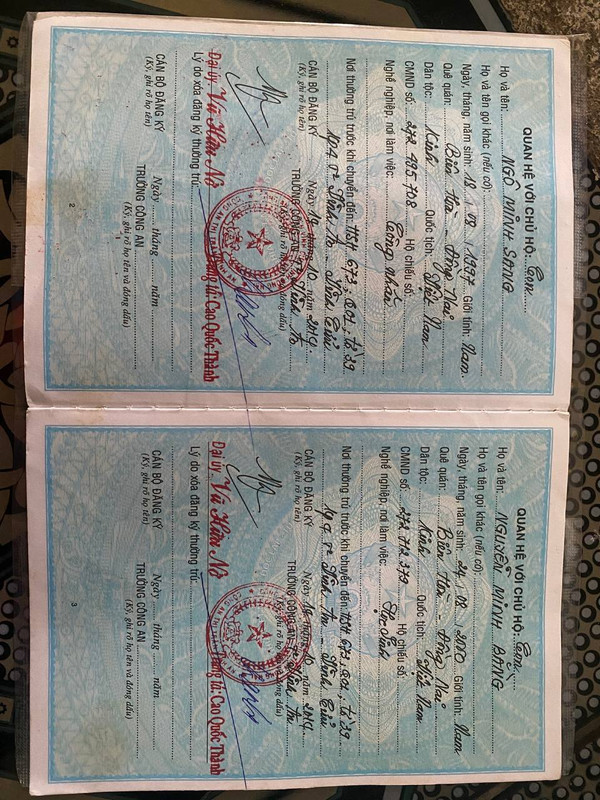 QUAN HỆ VỚI CHỦ HỘ: Con
Họ và tên: NGÔ MINH SANG
Họ và tên gọi khác (nếu có):
Ngày, tháng, năm sinh: 18 / 09 / 1997 Giới tính: Nam.
Quê quán: Biên Hòa - Đồng Nai
Dân tộc: Kinh Quốc tịch: Việt Nam
CMND số: Hộ chiếu số:
Nghề nghiệp, nơi làm việc: Công nhân
Nơi thường trú trước khi chuyển đến:
Ngày 10 tháng 10 năm 2014.
CÁN BỘ ĐĂNG KÝ TRƯỞNG CÔNG AN
(Ký, ghi rõ họ tên)
Đại úy Vũ Hữu Cao Quốc Thành
Lý do xóa đăng ký thường trú:
Ngày ...... tháng ...... năm
CÁN BỘ ĐĂNG KÝ TRƯỞNG CÔNG AN
(Ký, ghi rõ họ tên) (Ký, ghi rõ họ tên và đóng dấu)
2
QUAN HỆ VỚI CHỦ HỘ: Con
Họ và tên: NGUYỄN MINH BẰNG
Họ và tên gọi khác (nếu có):
Ngày, tháng, năm sinh: 24 / 09 / 2000 Giới tính: Nam
Quê quán: Biên Hòa - Đồng Nai
Dân tộc: Kinh Quốc tịch: Việt Nam
CMND số: 272 772 379 Hộ chiếu số:
Nghề nghiệp, nơi làm việc: Học sinh
Nơi thường trú trước khi chuyển đến:
Ngày 10 tháng 10 năm 2014
CÁN BỘ ĐĂNG KÝ TRƯỞNG CÔNG AN
(Ký, ghi rõ họ tên)
Đại úy Vũ Hữu Cao Quốc Thành
Lý do xóa đăng ký thường trú:
Ngày ...... tháng ...... năm
CÁN BỘ ĐĂNG KÝ TRƯỞNG CÔNG AN
(Ký, ghi rõ họ tên) (Ký, ghi rõ họ tên và đóng dấu)
3